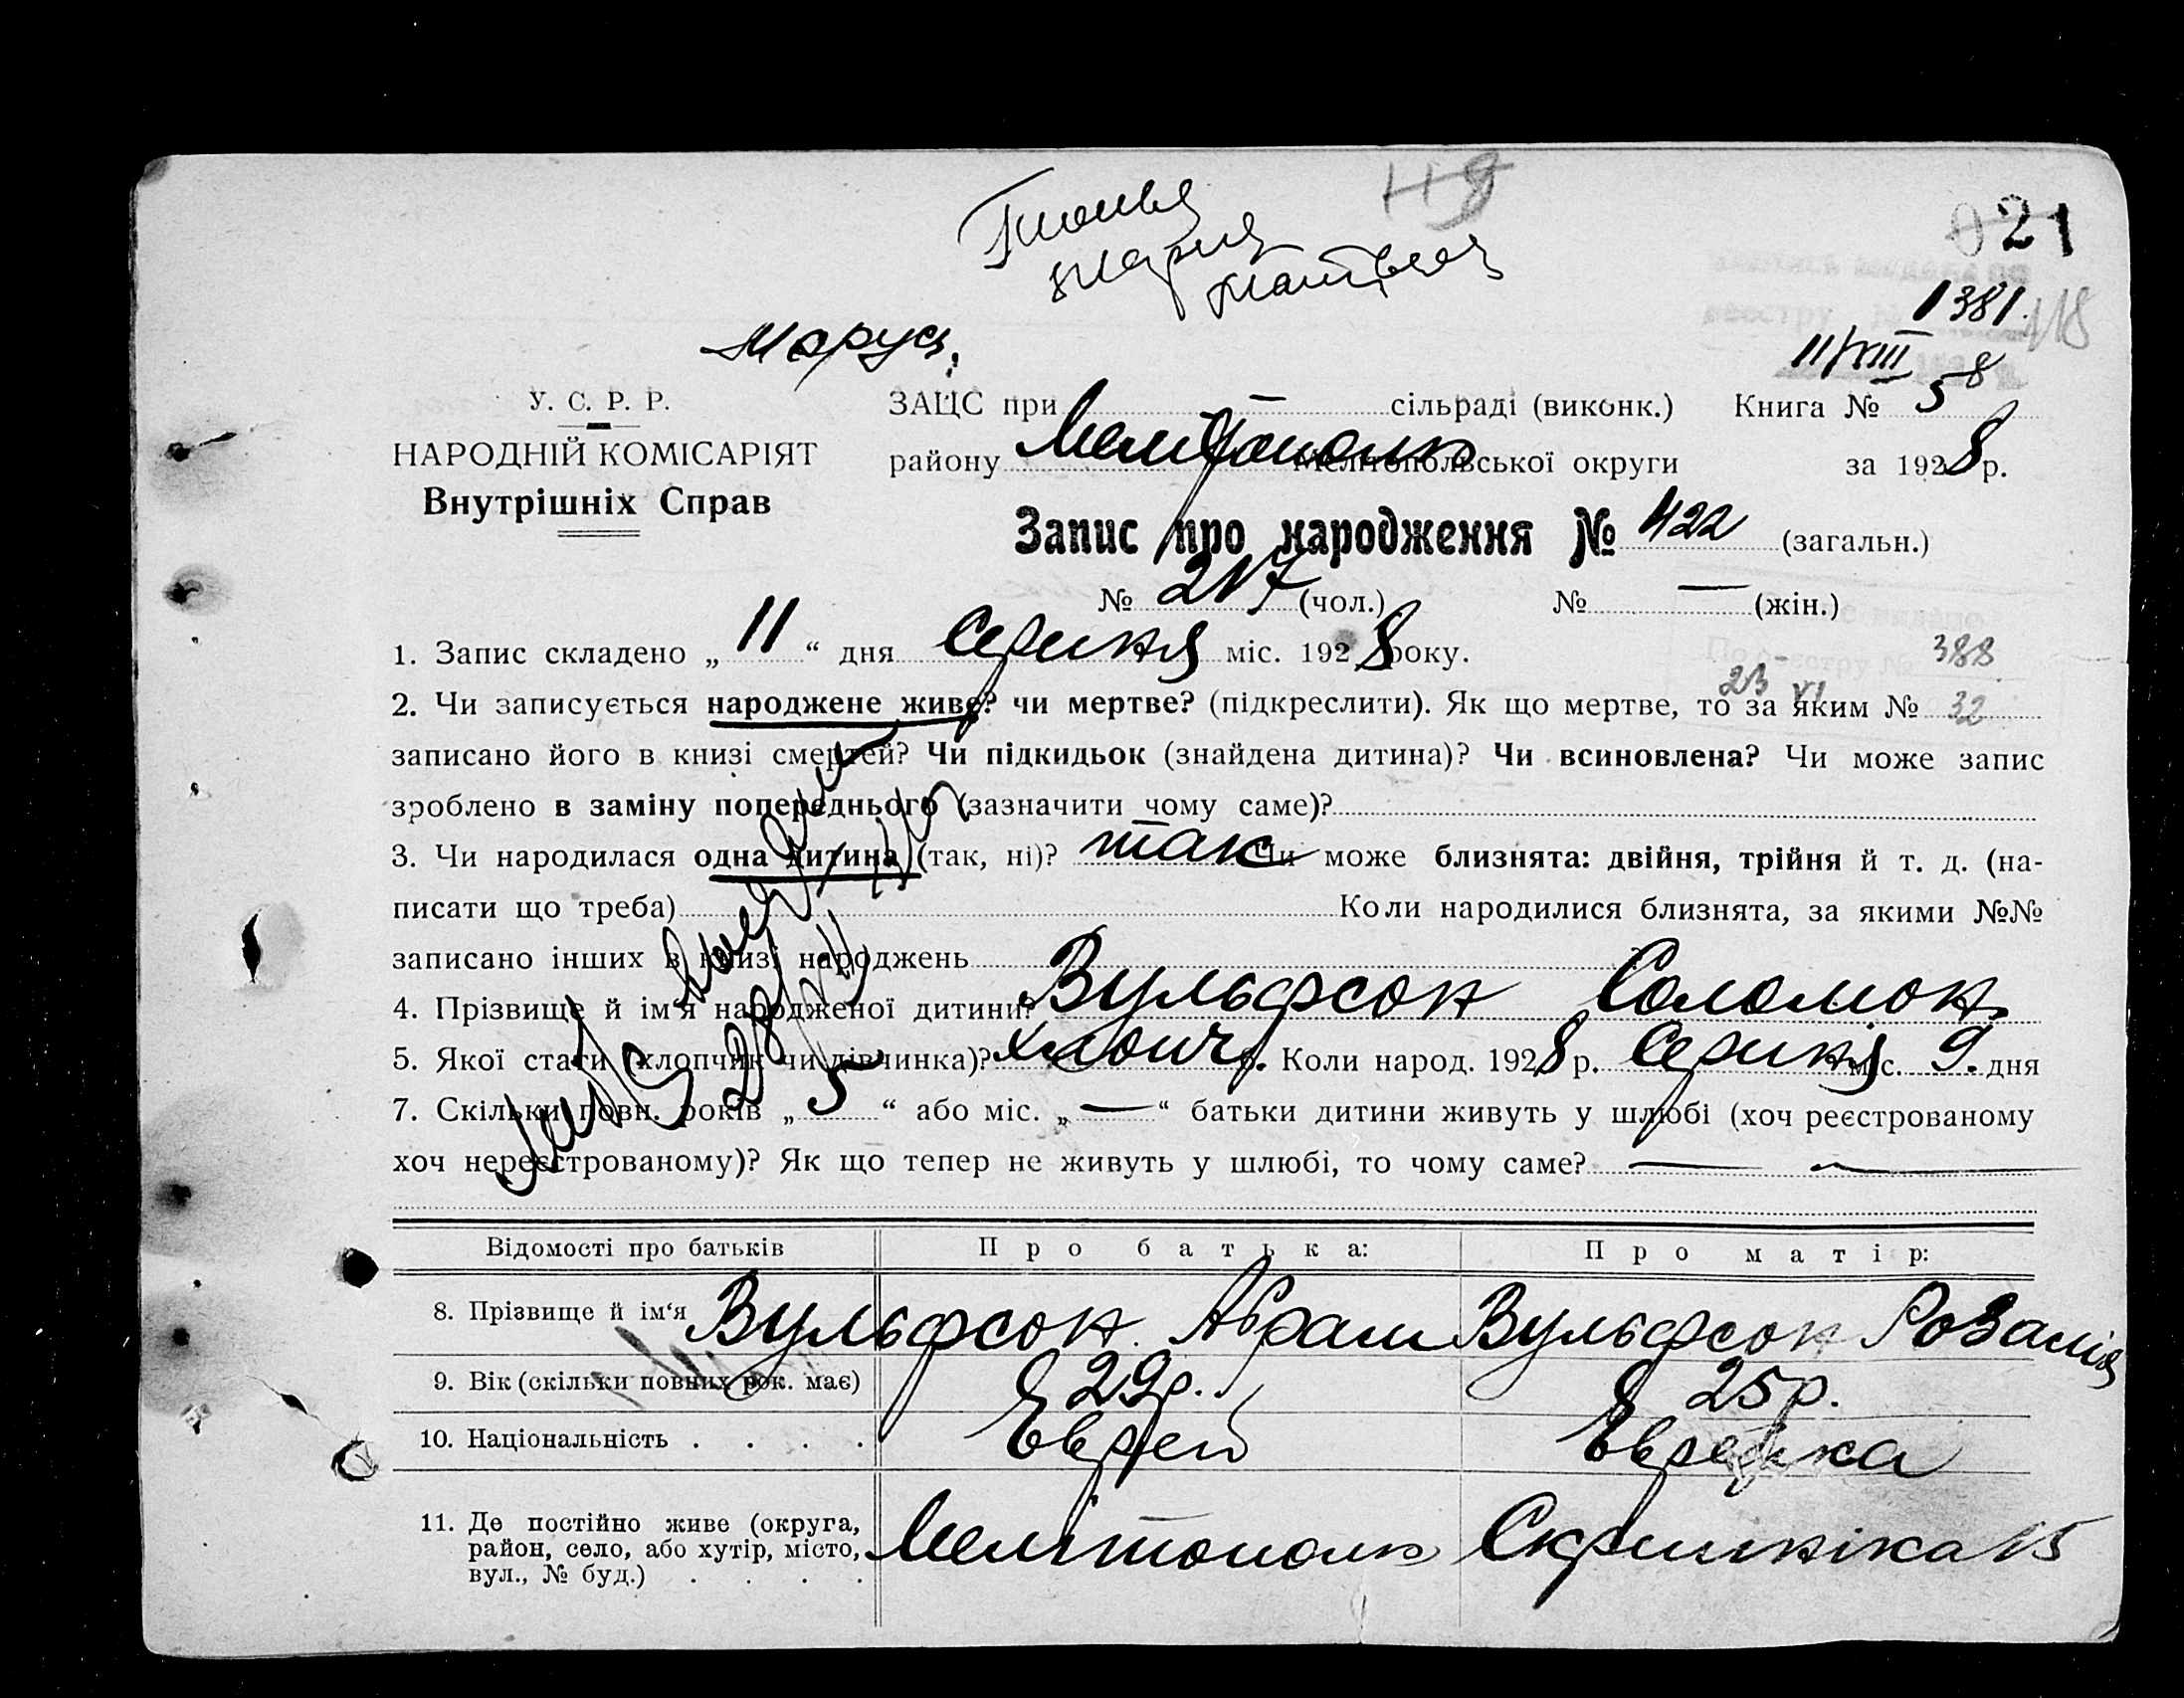 119
021
1381.
118
11/VIII 8
Маруся
У. С. Р. Р.
НАРОДНІЙ КОМІСАРІЯТ
Внутрішніх Справ
ЗАЦС при — сільраді (виконк.) Книга № 5
району Мелітополь Мелітопольської округи за 1928 р.
Запис про народження № 422 (загальн.)
№ 217 (чол.) № — (жін.)
1. Запис складено „ 11 “ дня Серпня міс. 1928 року.
388
23 VI
2. Чи записується народжене живе? чи мертве? (підкреслити). Як що мертве, то за яким № 32
записано його в книзі смертей? Чи підкидьок (знайдена дитина)? Чи всиновлена? Чи може запис
зроблено в заміну попереднього (зазначити чому саме)?
3. Чи народилася одна дитина (так, ні)? так Чи може близнята: двійня, трійня й т. д. (на-
писати що треба) Коли народилися близнята, за якими №№
записано інших в книзі народжень
4. Прізвище й ім'я народженої дитини? Вульфсон Соломон
5. Якої стати (хлопчик чи дівчинка)? хлопч. 6. Коли народ. 1928 р. Серпня міс. 9. дня
7. Скільки повн. років „ 5 “ або міс. „ — “ батьки дитини живуть у шлюбі (хоч реєстрованому
хоч нереєстрованому)? Як що тепер не живуть у шлюбі, то чому саме? — —
Відомості про батьків Про батька: Про матір:
8. Прізвище й ім‘я Вульфсон Абрам Вульфсон Розалія
9. Вік (скільки повних рок. має) 29р. 25р.
10. Національність . . . . Єврей Єврейка
11. Де постійно живе (округа,
район, село, або хутір, місто,
вул., № буд.) . . . . Мелітополь Скрипніка 15